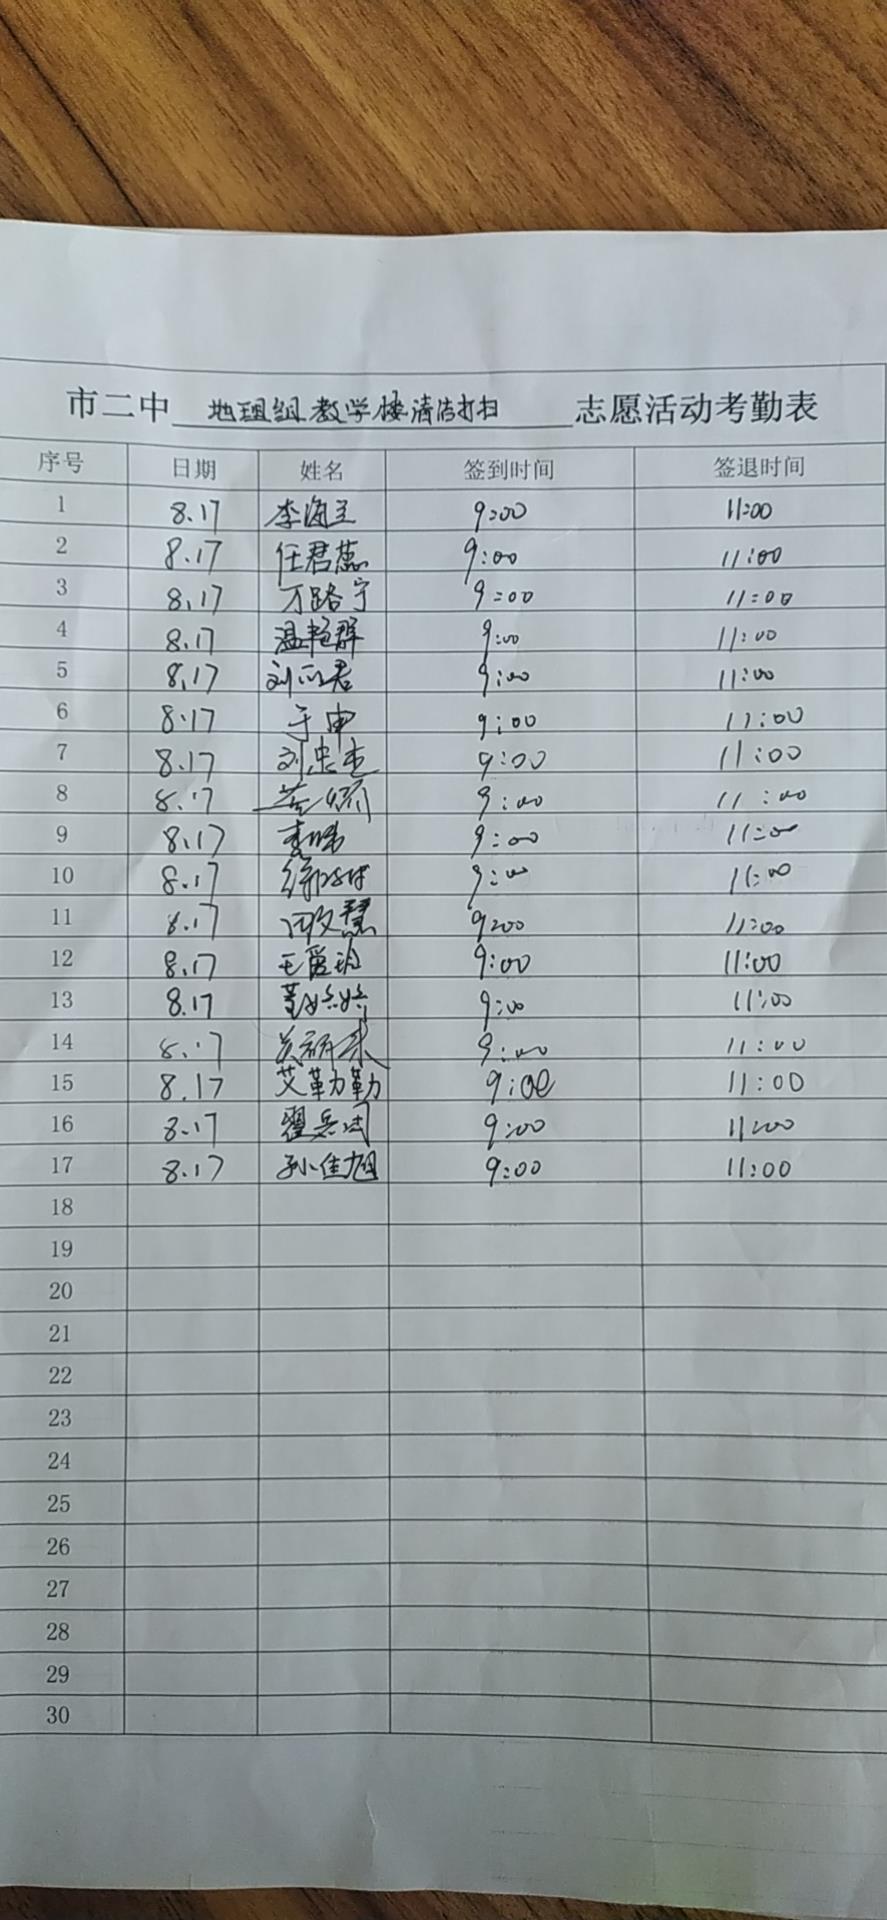 市二中 地理组教学楼清洁打扫 志愿活动考勤表
序号 日期 姓名 签到时间 签退时间
1 8.17 李海兰 9:00 11:00
2 8.17 任君蕊 9:00 11:00
3 8.17 万路宁 9:00 11:00
4 8.17 温艳群 9:00 11:00
5 8.17 刘 君 9:00 11:00
6 8.17 于申 9:00 11:00
7 8.17 刘忠 9:00 11:00
8 8.17 9:00 11:00
9 8.17 李 9:00 11:00
10 8.17 徐 9:00 11:00
11 8.17 田文慧 9:00 11:00
12 8.17 王 9:00 11:00
13 8.17 董婷婷 9:00 11:00
14 8.17 9:00 11:00
15 8.17 艾勒勒 9:00 11:00
16 8.17 瞿兵 9:00 11:00
17 8.17 孙佳旭 9:00 11:00
18
19
20
21
22
23
24
25
26
27
28
29
30